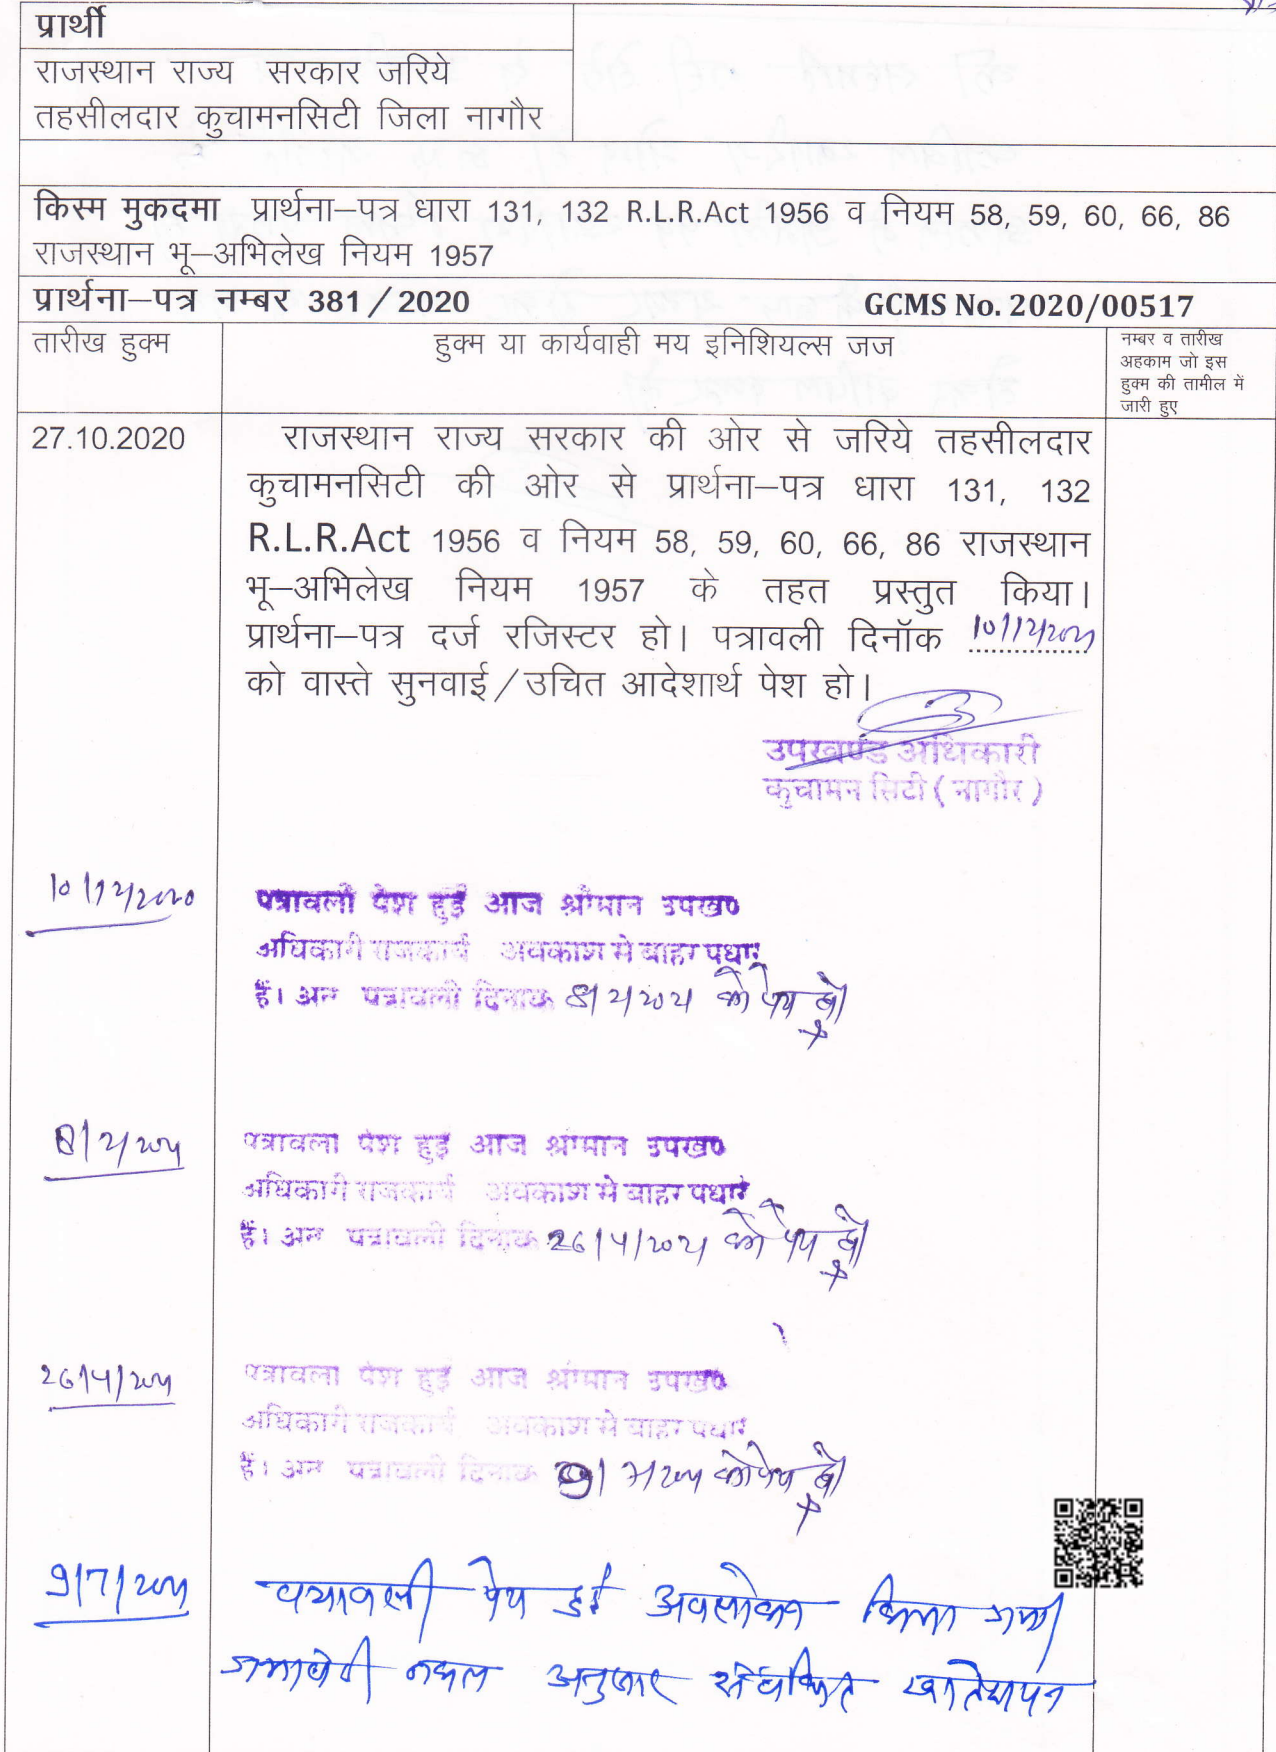 प्रार्थी
राजस्थान राज्य सरकार जरिये
तहसीलदार कुचामनसिटी जिला नागौर
किस्म मुकदमा प्रार्थना–पत्र धारा 131, 132 R.L.R.Act 1956 व नियम 58, 59, 60, 66, 86
राजस्थान भू–अभिलेख नियम 1957
प्रार्थना–पत्र नम्बर 381 / 2020 GCMS No. 2020/00517
तारीख हुक्म
हुक्म या कार्यवाही मय इनिशियल्स जज
नम्बर व तारीख
अहकाम जो इस
हुक्म की तामील में
जारी हुए
27.10.2020
राजस्थान राज्य सरकार की ओर से जरिये तहसीलदार
कुचामनसिटी की ओर से प्रार्थना–पत्र धारा 131, 132
R.L.R.Act 1956 व नियम 58, 59, 60, 66, 86 राजस्थान
भू–अभिलेख नियम 1957 के तहत प्रस्तुत किया।
प्रार्थना–पत्र दर्ज रजिस्टर हो। पत्रावली दिनॉक
को वास्ते सुनवाई / उचित आदेशार्थ पेश हो।
उपखण्ड अधिकारी
कुचामन सिटी ( नागौर )
10/12/2020
पत्रावली पेश हुई आज श्रीमान उपखण्ड
अधिकारी राजकार्य अवकाश मे बाहर पधारे
हैं। अत पत्रावली दिनांक 8/2/2021 को पेश हो
8/2/2021
पत्रावली पेश हुई आज श्रीमान उपखण्ड
अधिकारी राजकार्य अवकाश मे बाहर पधारे
हैं। अत पत्रावली दिनांक 26/4/2021 को पेश हो
26/4/2021
पत्रावली पेश हुई आज श्रीमान उपखण्ड
अधिकारी राजकार्य अवकाश मे बाहर पधारे
हैं। अत पत्रावली दिनांक 9/7/2021 को पेश हो
9/7/2021
पत्रावली पेश हुई अवलोकन किया गया
जमाबंदी नकल अनुसार संबंधित खातेदारान